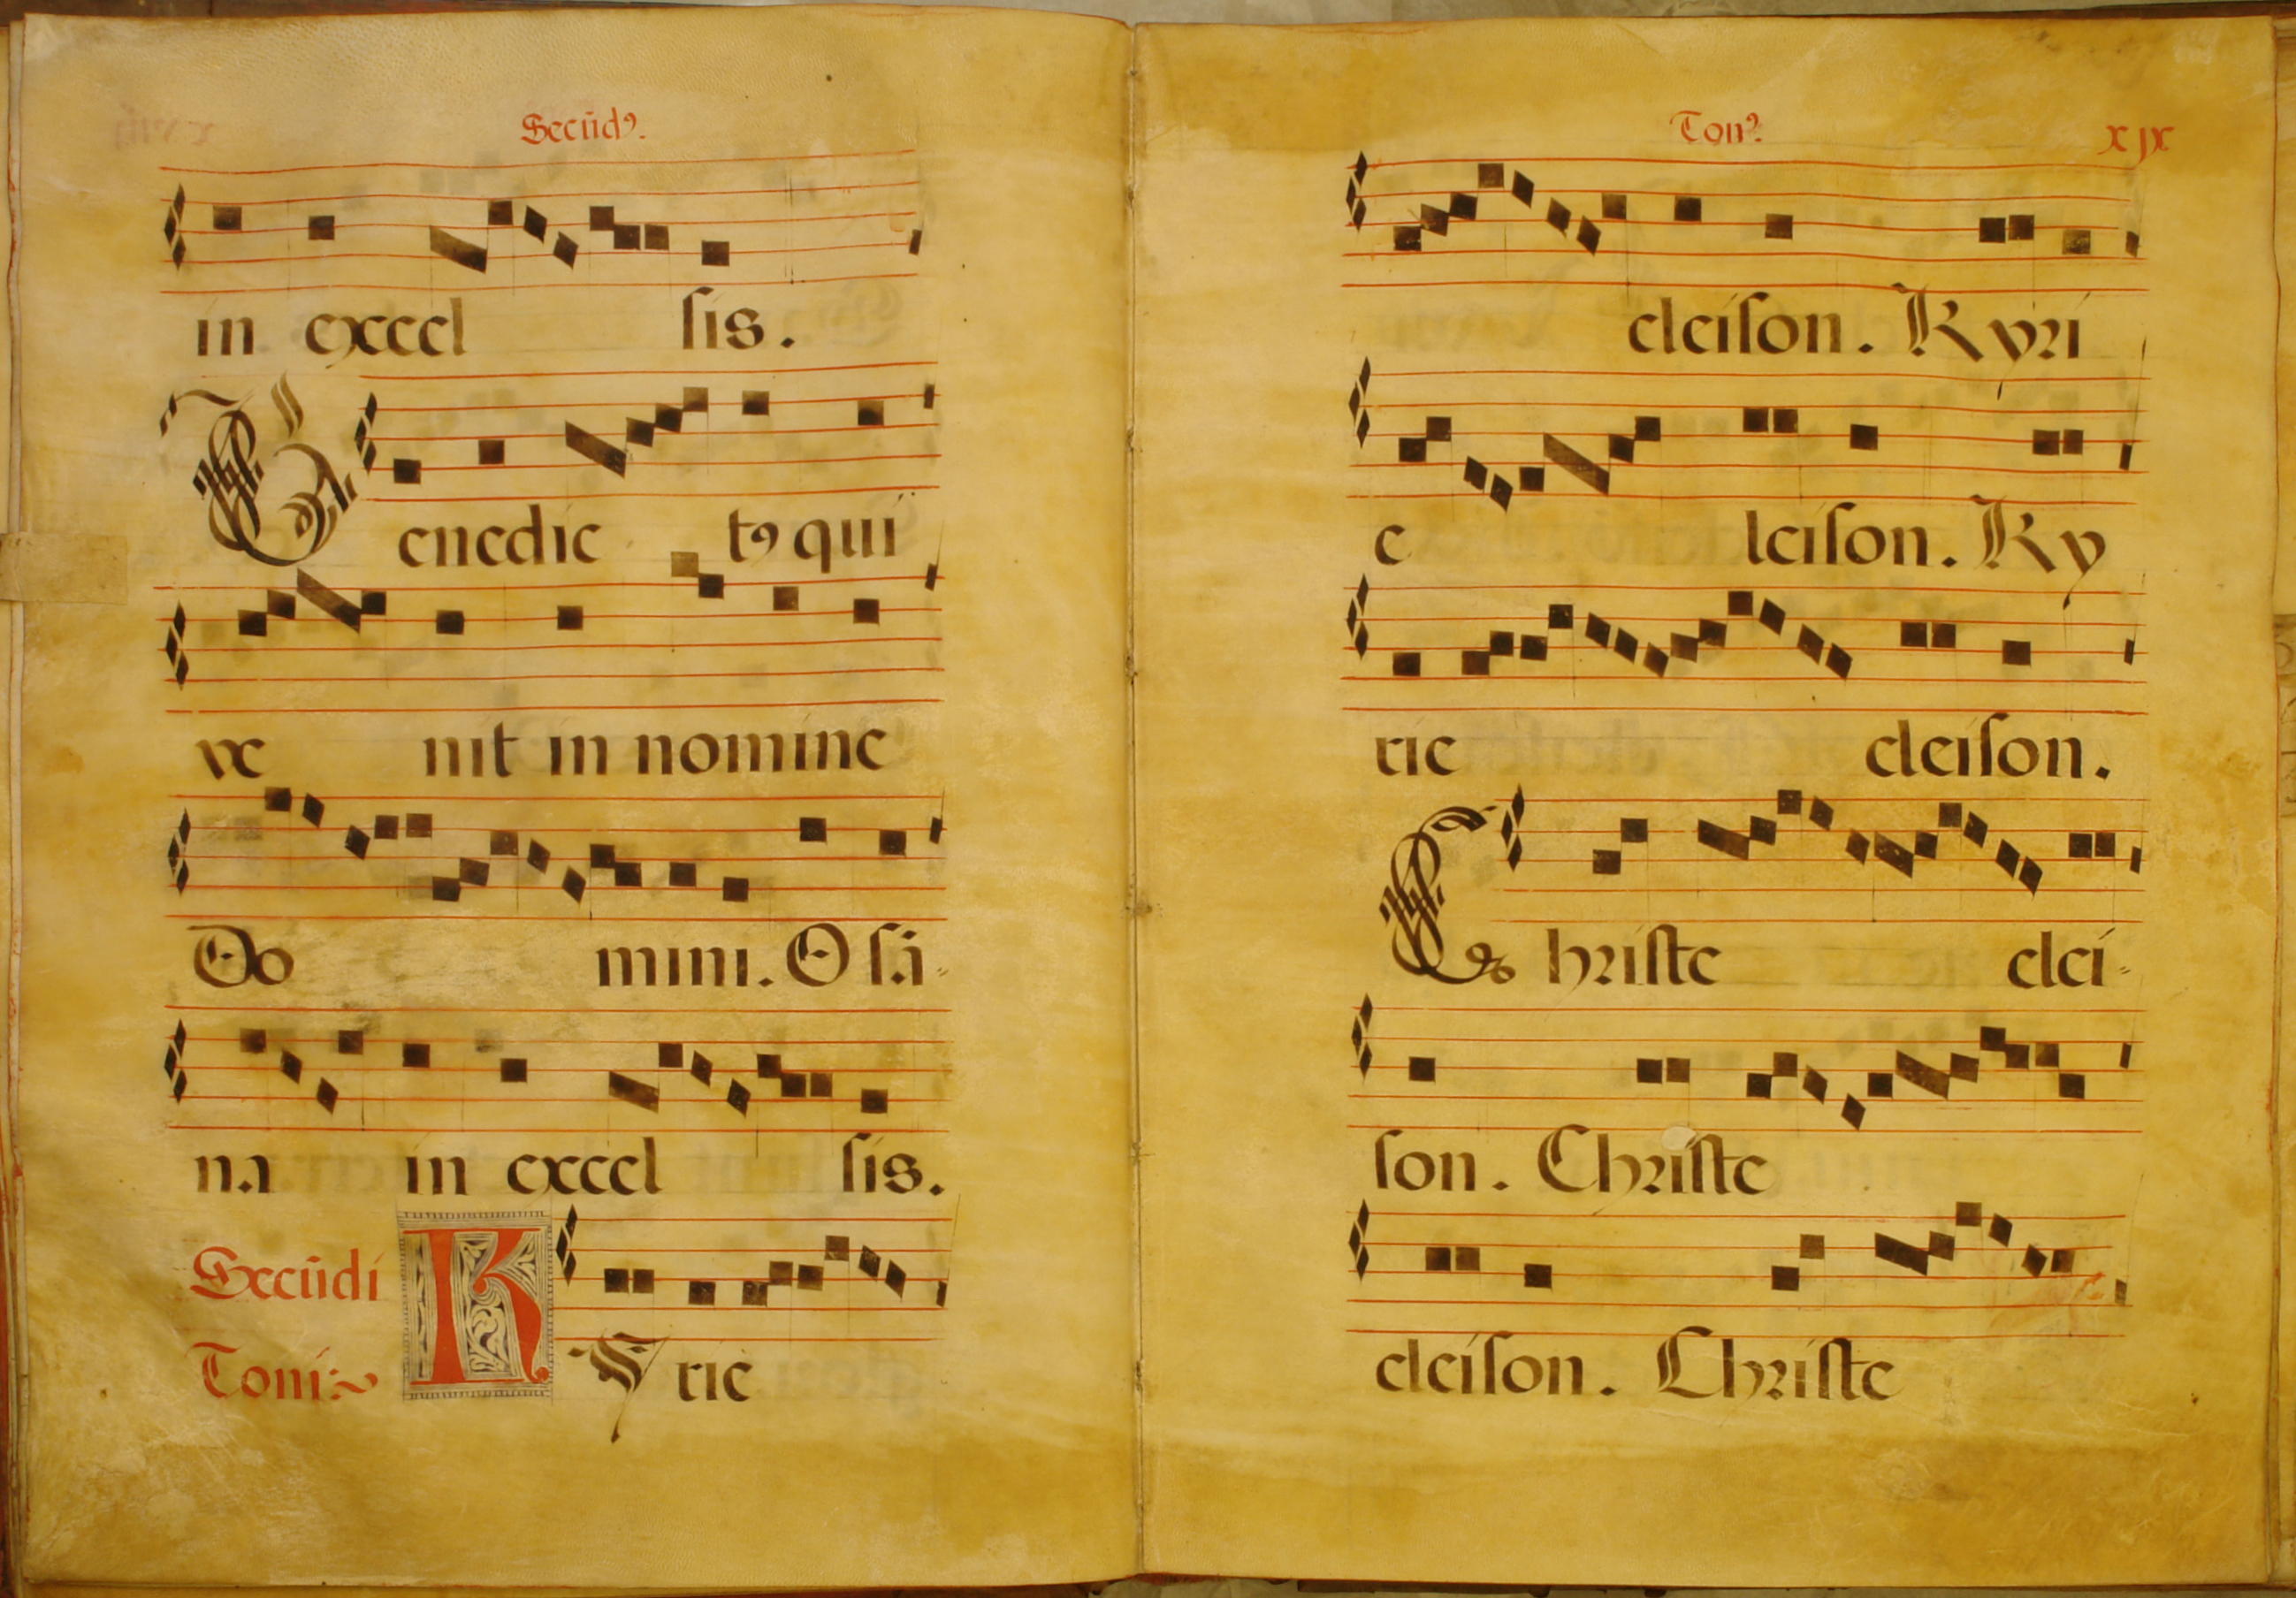 Secũdꝰ.
in excel sis.
Benedic tꝰ qui
ve nit in nomine
Do mini. O sã-
na in excel sis.
Secũdi
Toni:~
KY rie
Tonꝰ.
xjx
eleison. Kyri
e leison. Ky
rie eleison.
Christe elei-
son. Christe
eleison. Christe